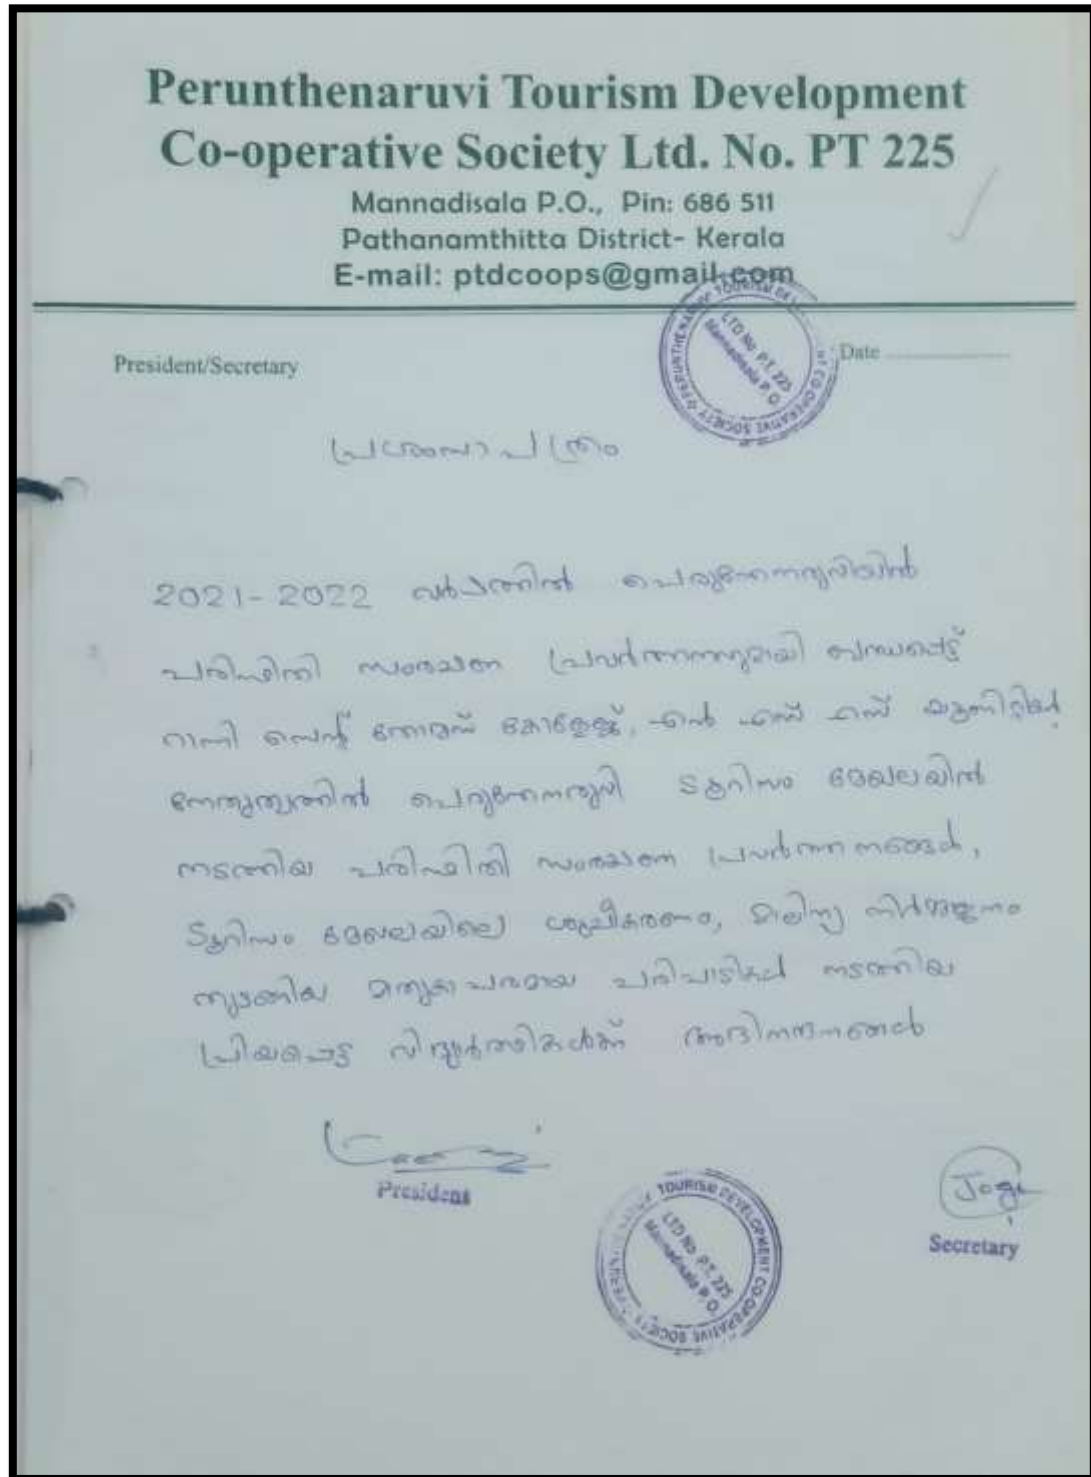 Perunthenaruvi Tourism Development
Co-operative Society Ltd. No. PT 225
Mannadisala P.O., Pin: 686 511
Pathanamthitta District- Kerala
E-mail: ptdcoops@gmail.com
PERUNTHENARUVI TOURISM DE NT CO-OPERATIVE SOCIETY
LTD No. P.T. 225
Mannadisala P.O.
President/Secretary
Date
പ്രശംസാപത്രം
2021-2022 വർഷത്തിൽ പെരുന്തേനരുവിയിൽ
പരിസ്ഥിതി സംരക്ഷണ പ്രവർത്തനവുമായി ബന്ധപ്പെട്ട്
റാന്നി സെന്റ് തോമസ് കോളേജ്, എൻ എസ് എസ് യൂണിറ്റിന്റെ
നേതൃത്വത്തിൽ പെരുന്തേനരുവി ടൂറിസം മേഖലയിൽ
നടത്തിയ പരിസ്ഥിതി സംരക്ഷണ പ്രവർത്തനങ്ങൾ,
ടൂറിസം മേഖലയിലെ ശുചീകരണം, മാലിന്യ നിർമ്മാജ്ജനം
തുടങ്ങിയ മാതൃകാപരമായ പരിപാടികൾ നടത്തിയ
പ്രിയപ്പെട്ട വിദ്യാർത്ഥികൾക്ക് അഭിനന്ദനങ്ങൾ
President
TOURISM DEVELOPMENT CO-OPERATIVE SOCIETY
LTD No. P.T. 225
Mannadisala P.O.
Secretary